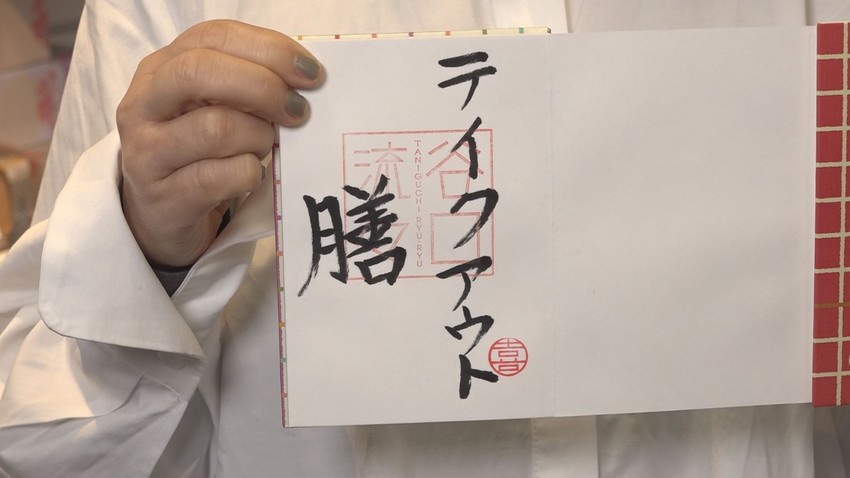 テイクアウト
膳
谷口
流々
TANIGUCHI RYU-RYU
喜